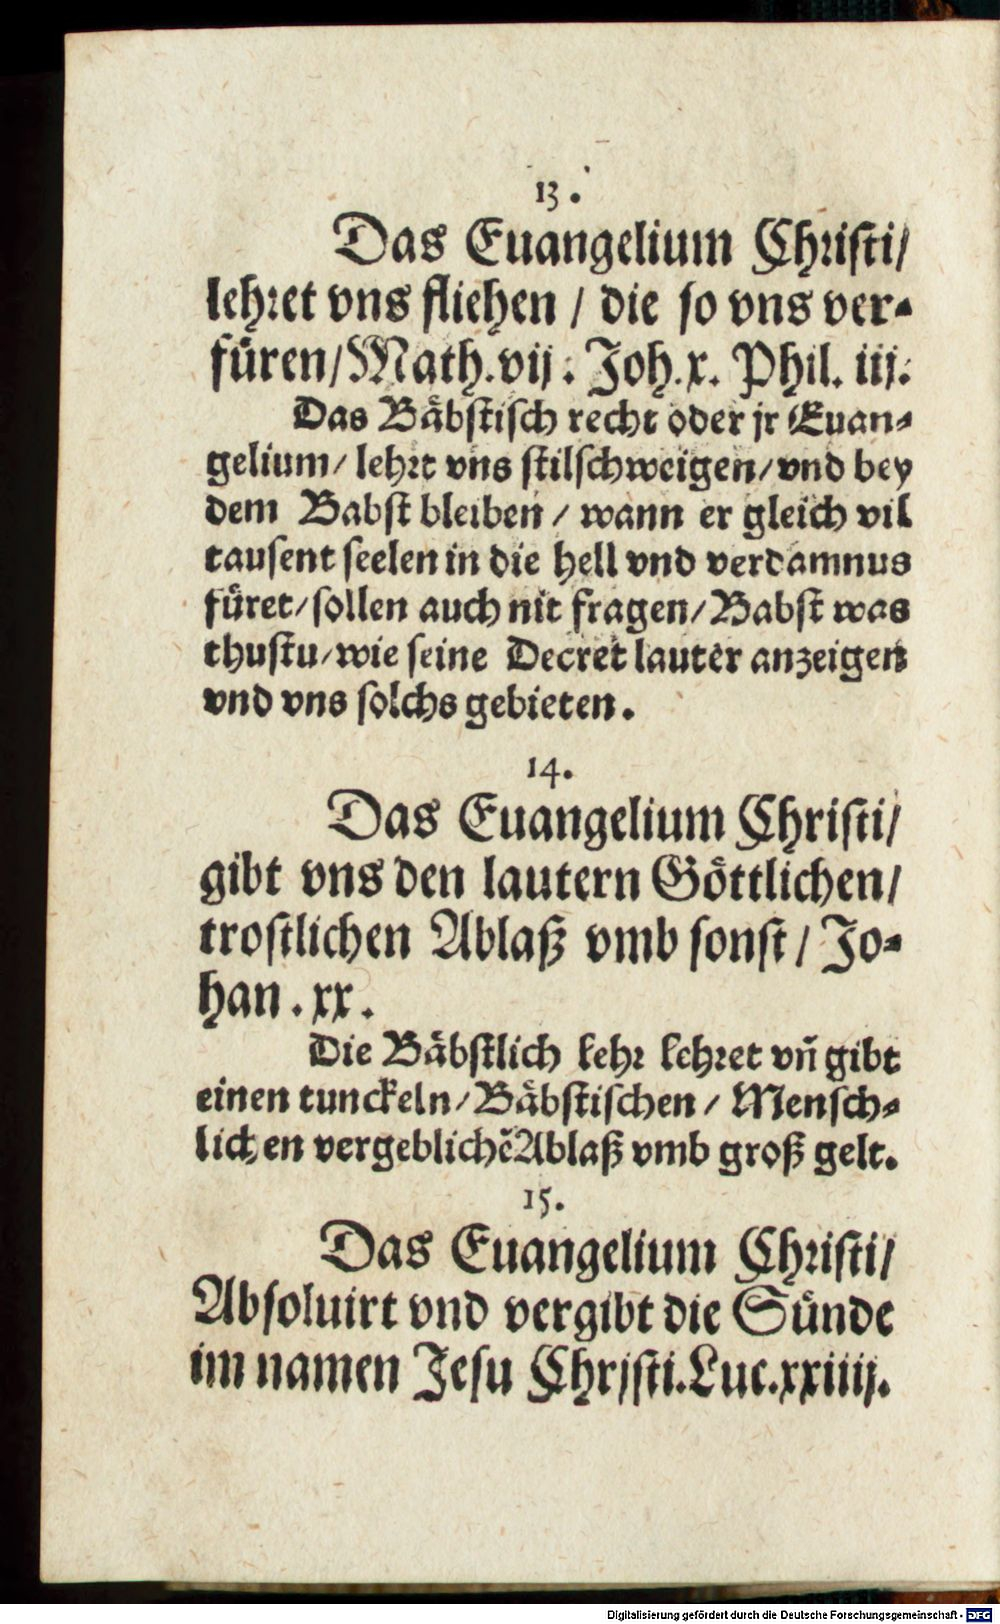 13.
Das Euangelium Christi/
lehret vns fliehen / die so vns ver-
füren/Math.vij. Joh.x. Phil. iij.
Das Bäbstisch recht oder jr Euan-
gelium/ lehrt vns stilschweigen/vnd bey
dem Babst bleiben / wann er gleich vil
tausent seelen in die hell vnd verdamnus
füret/sollen auch nit fragen/Babst was
thustu/wie seine Decret lauter anzeigen
vnd vns solchs gebieten.
14.
Das Euangelium Christi/
gibt vns den lautern Göttlichen/
trostlichen Ablaß vmb sonst / Jo-
han . xx.
Die Bäbstlich lehr lehret vñ gibt
einen tunckeln/Bäbstischen / Mensch-
lichen vergeblichẽ Ablaß vmb groß gelt.
15.
Das Euangelium Christi/
Absoluirt vnd vergibt die Sünde
im namen Jesu Christi.Luc.xxiiij.
Digitalisierung gefördert durch die Deutsche Forschungsgemeinschaft - DFG